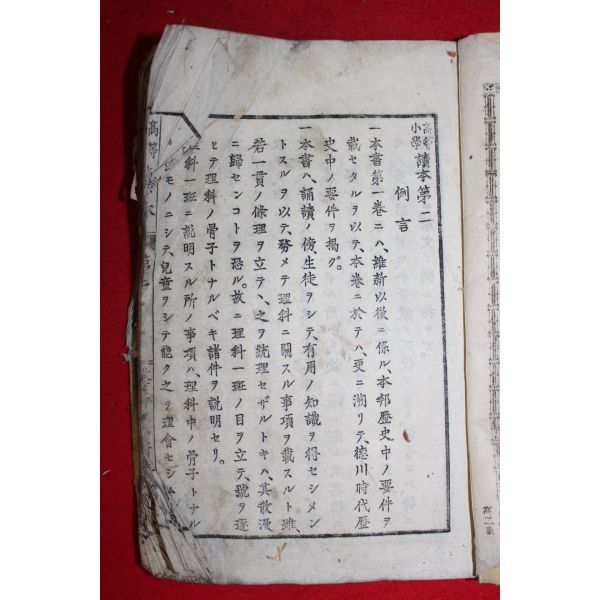 高等小學讀本第二
例言
一本書第一卷ニハ、維新以後ニ係ル、本邦歷史中ノ要件ヲ
載セタルヲ以テ、本卷ニ於テハ、更ニ溯リテ、德川時代歷
史中ノ要件ヲ揭グ。
一本書ハ、誦讀ノ傍生徒ヲシテ、有用ノ知識ヲ得セシメン
トスルヲ以テ、務メテ理科ニ關スル事項ヲ載スルト雖、
若一貫ノ條理ヲ立テヽ、之ヲ統理セザルトキハ、其散漫
ニ歸センコトヲ恐ル。故ニ理科一班ノ目ヲ立テ、號ヲ逐
ヒテ理科ノ骨子トナルベキ諸件ヲ說明セリ。
理科一班ニ說明スル所ノ事項ハ、理科中ノ骨子トナル
モノニシテ、兒童ヲシテ能ク之ヲ理會セシム
高等
第二